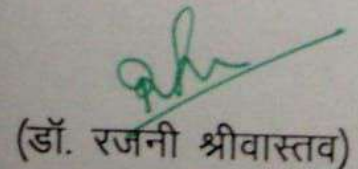 (डॉ. रजनी श्रीवास्तव)